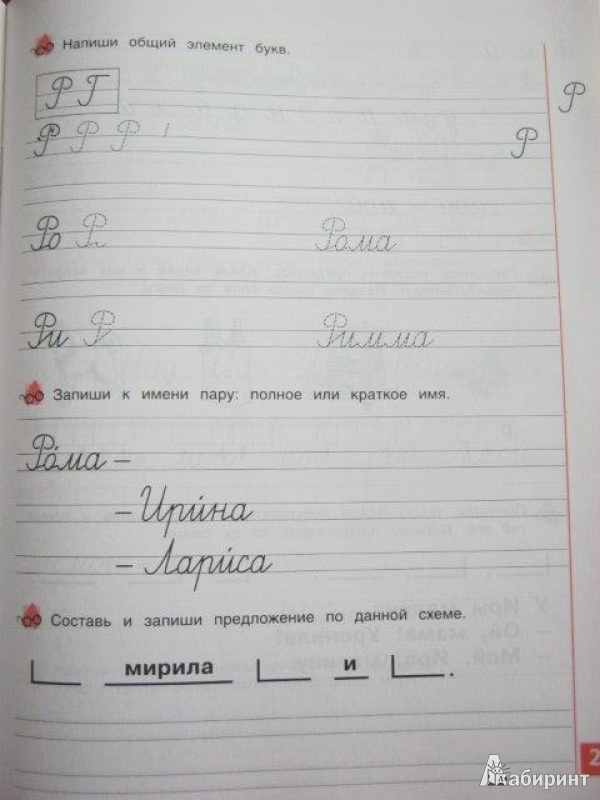 Напиши общий элемент букв.
Р Г
Р
Р Р Р
Р
Ро Р Рома
Ри Р Римма
Запиши к имени пару: полное или краткое имя.
Ро́ма –
– Ири́на
– Лари́са
Составь и запиши предложение по данной схеме.
мирила и .
2
Лабиринт